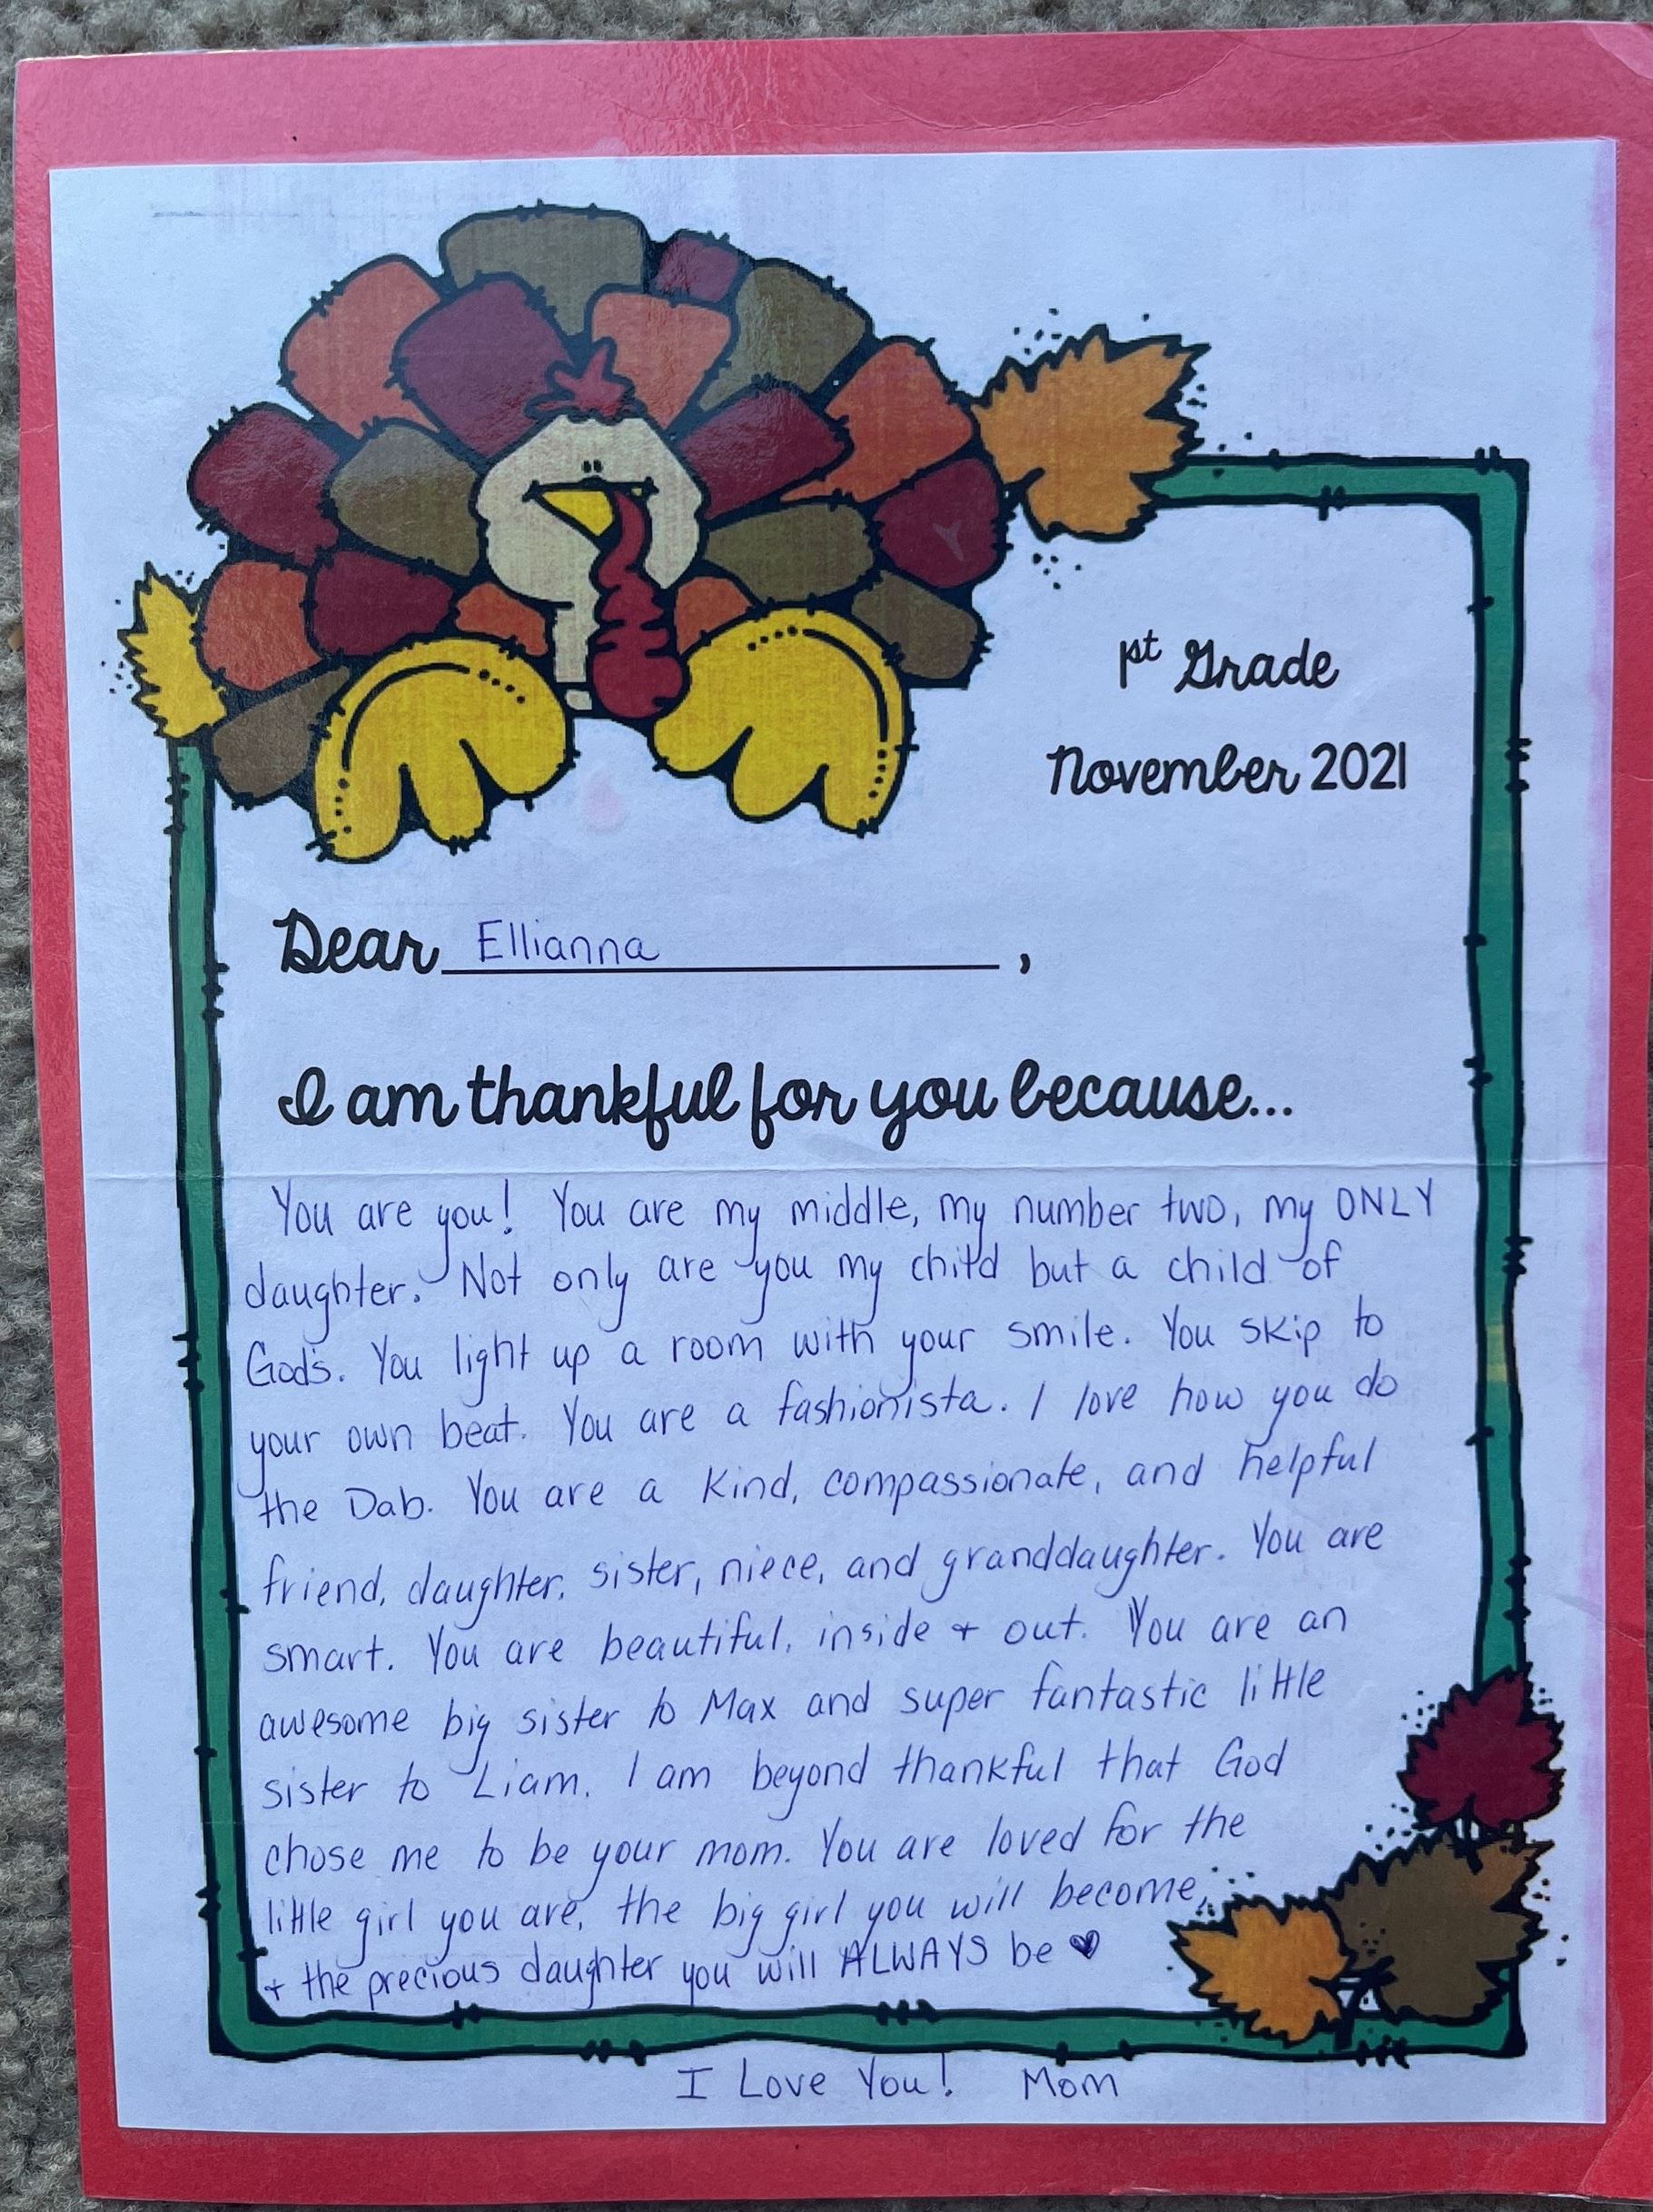 1st Grade
November 2021
Dear Ellianna,
I am thankful for you because...
You are you! You are my middle, my number two, my ONLY
daughter. Not only are you my child but a child of
God's. You light up a room with your smile. You skip to
your own beat. You are a fashionista. I love how you do
the Dab. You are a kind, compassionate, and helpful
friend, daughter, sister, niece, and granddaughter. You are
smart. You are beautiful, inside + out. You are an
awesome big sister to Max and super fantastic little
sister to Liam. I am beyond thankful that God
chose me to be your mom. You are loved for the
little girl you are, the big girl you will become,
+ the precious daughter you will ALWAYS be ♥
I Love You! Mom